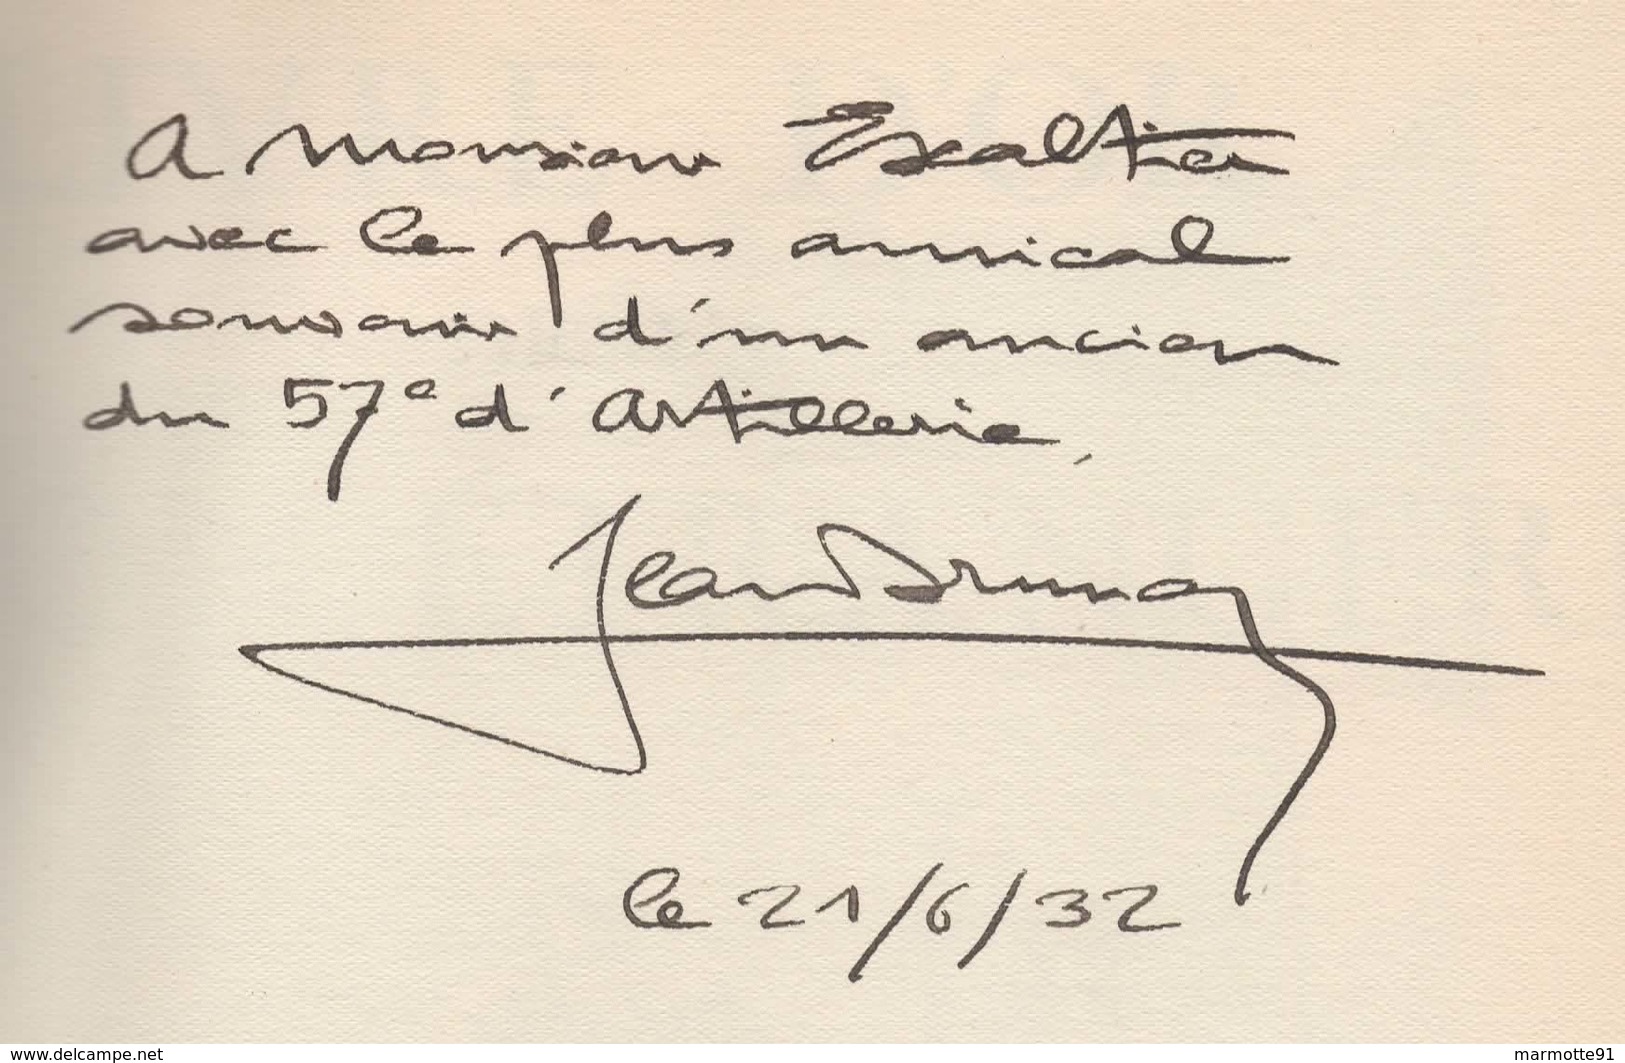 A Monsieur Exaltier
avec le plus amical
souvenir d'un ancien
du 57e d'Artillerie,
Jean
le 21/6/32
www.delcampe.net
marmotte91